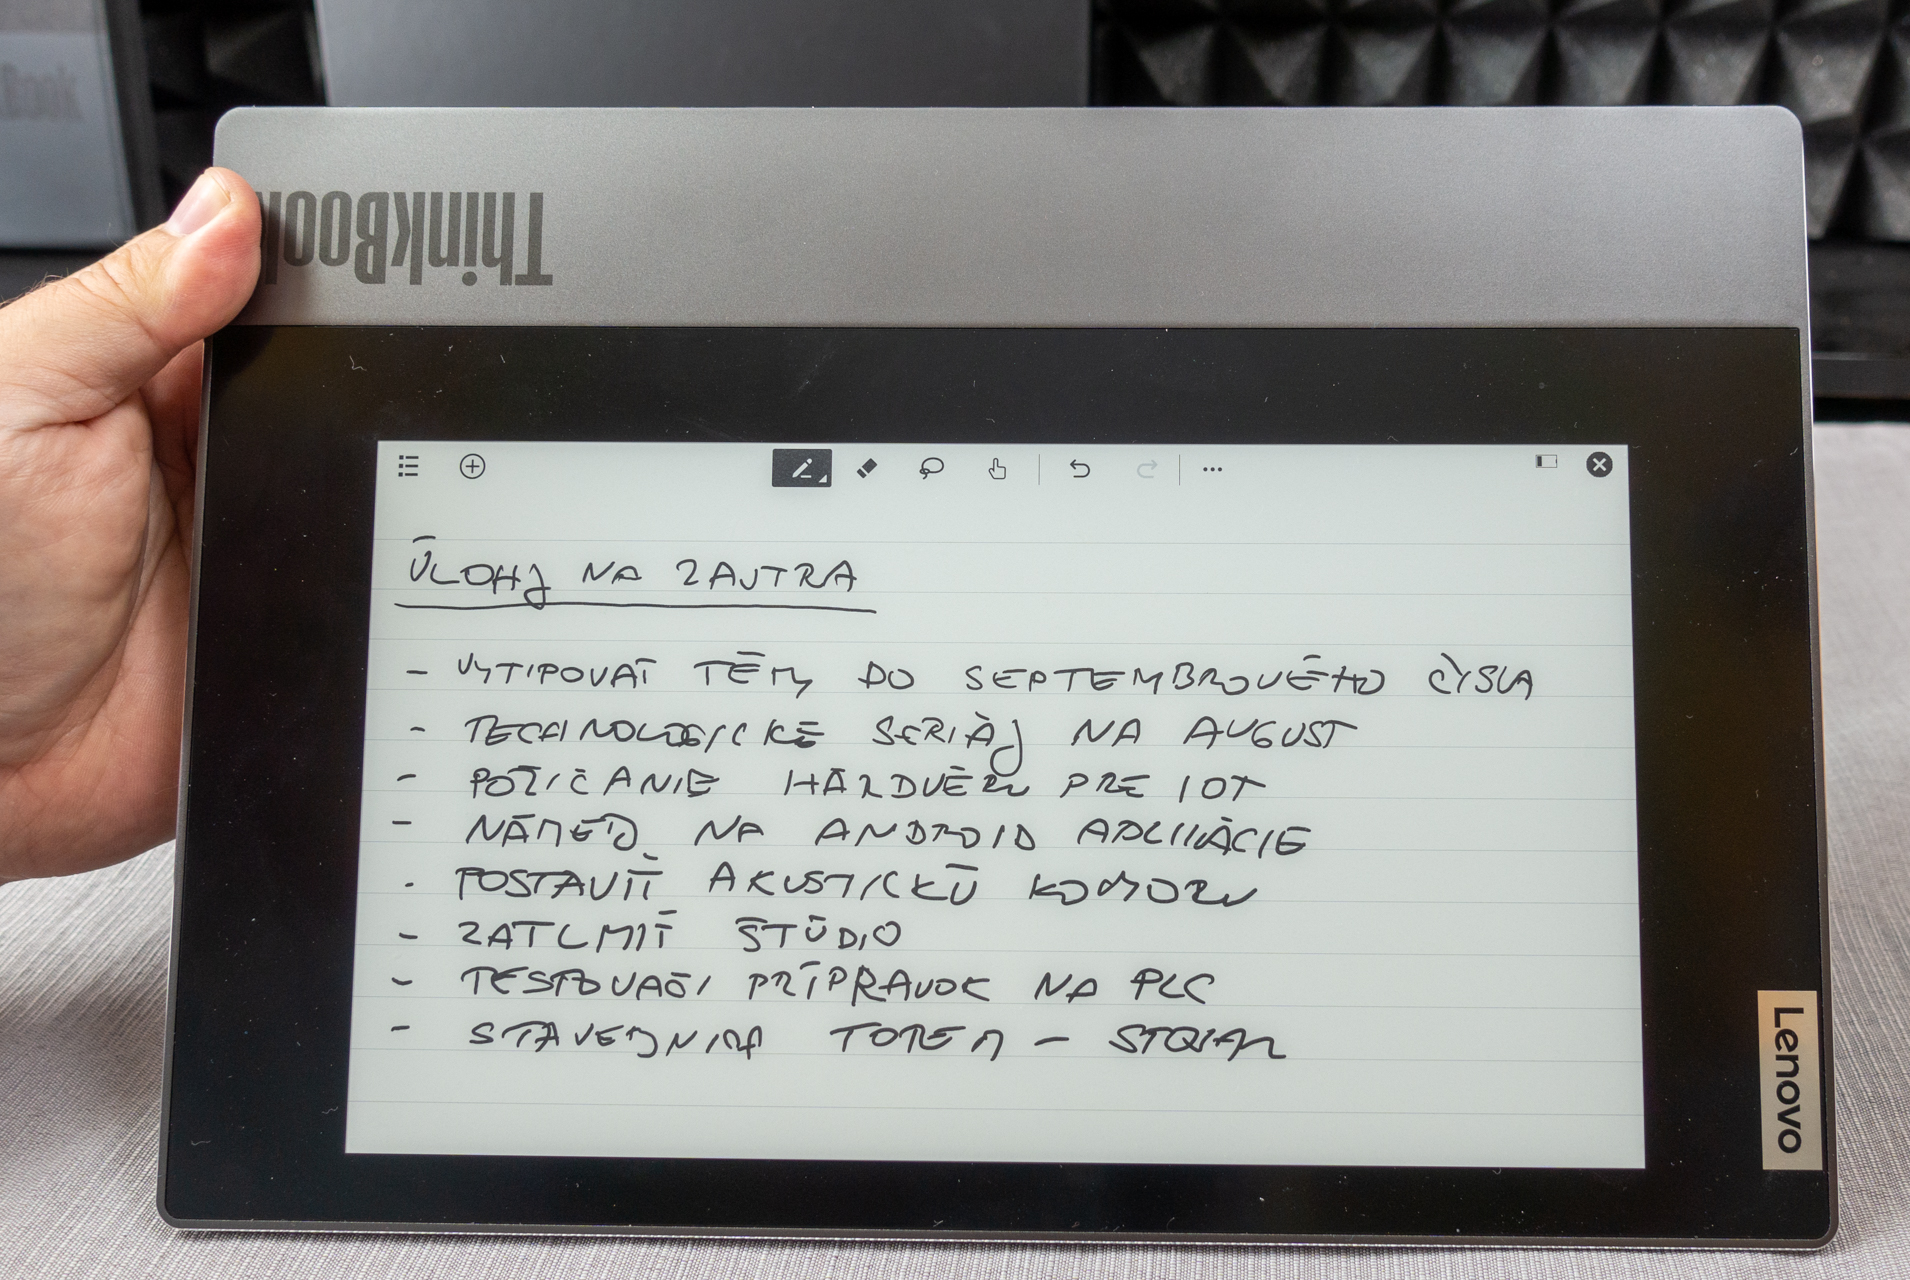 Book
ThinkBook
ÚLOHY NA ZAJTRA
- VYTIPOVAŤ TÉMY DO SEPTEMBROVÉHO ČÍSLA
- TECHNOLOGICKÉ SERIÁLY NA AUGUST
- POŽIČANIE HARDVÉRU PRE IOT
- NÁMETY NA ANDROID APLIKÁCIE
- POSTAVIŤ AKUSTICKÚ KOMORU
- ZATLMIŤ ŠTÚDIO
- TESTOVACÍ PRÍPRAVOK NA PLC
- STAVEBNICA TOTEM - STOJAN
Lenovo